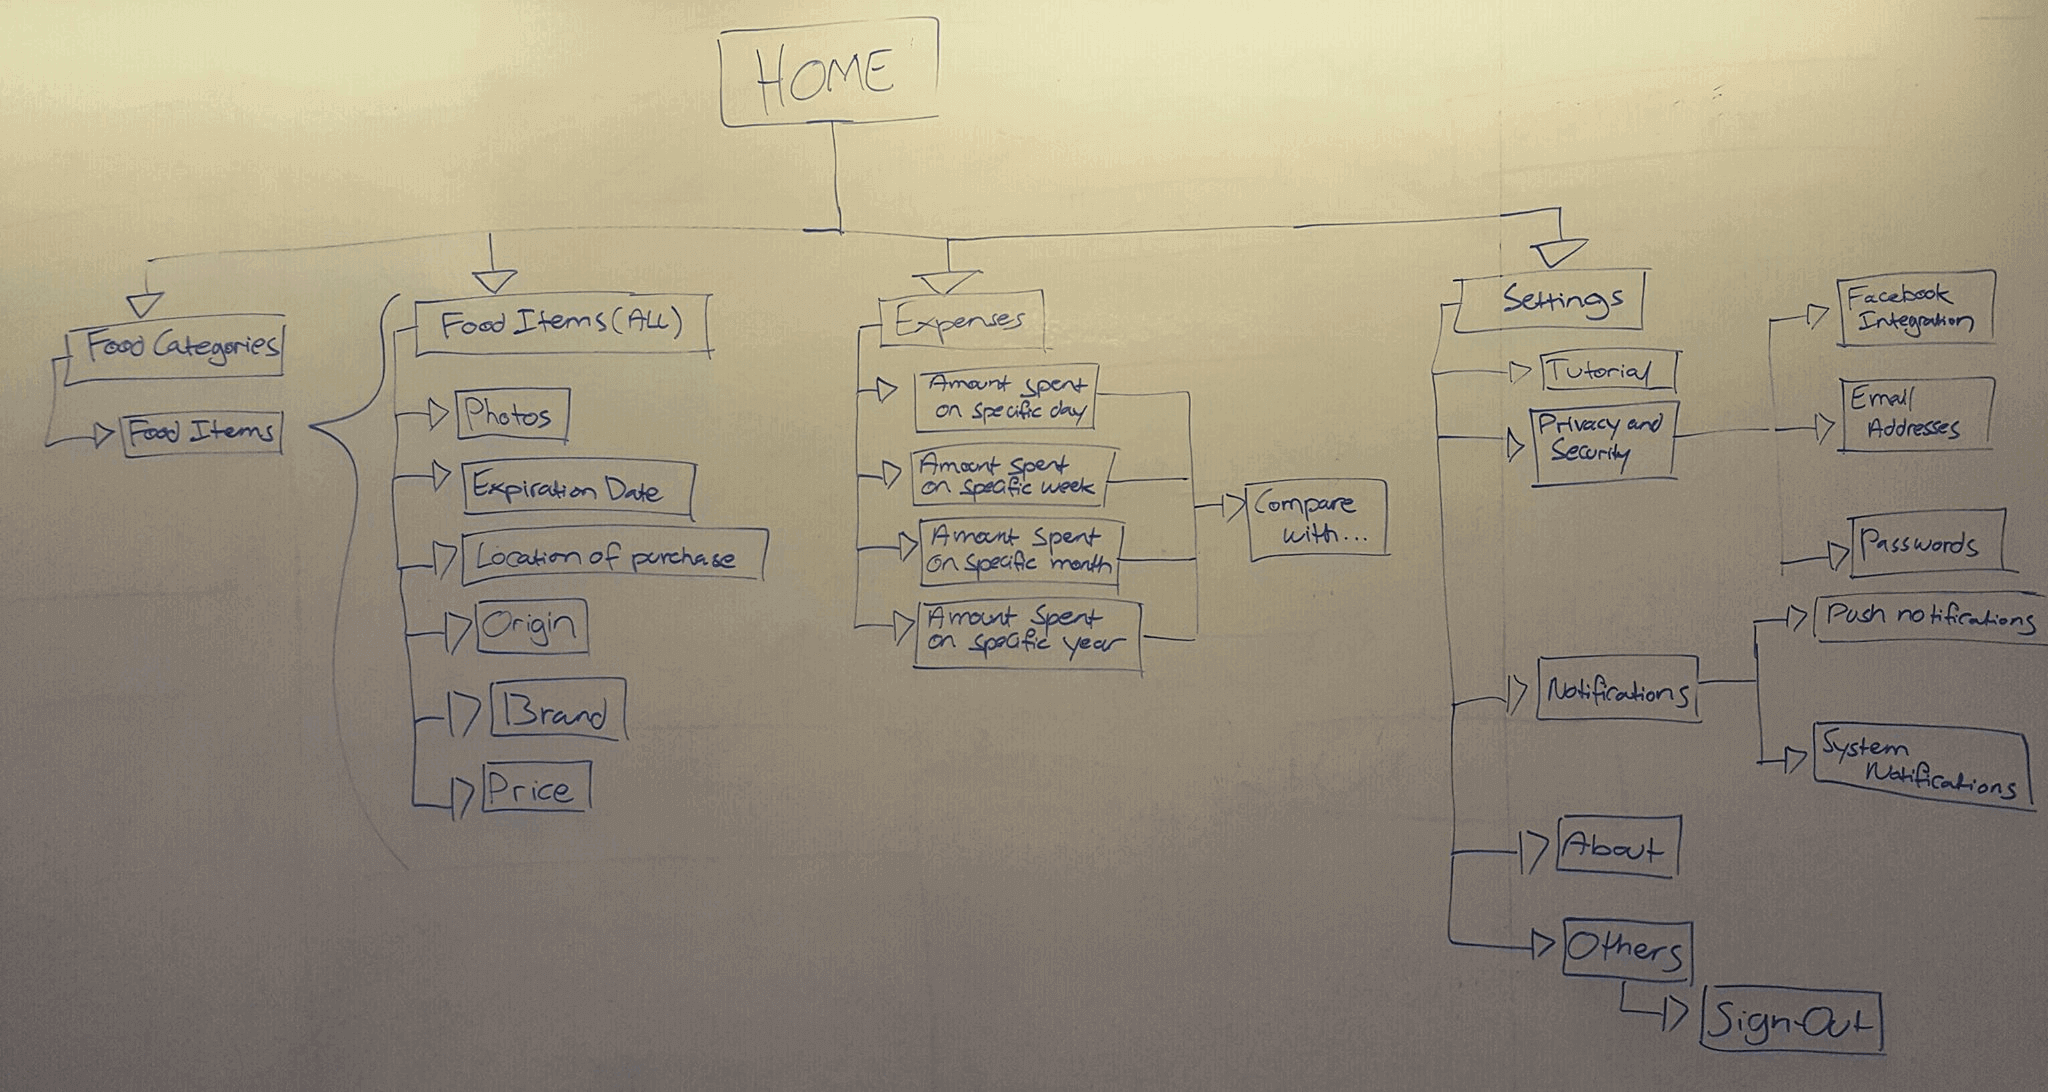 HOME
Food Categories
Food Items
Food Items (ALL)
Photos
Expiration Date
Location of purchase
Origin
Brand
Price
Expenses
Amount spent
on specific day
Amount spent
on specific week
Amount spent
on specific month
Amount spent
on specific year
Compare
with...
Settings
Tutorial
Privacy and
Security
Facebook
Integration
Email
Addresses
Passwords
Notifications
Push notifications
System
Notifications
About
Others
Sign-Out